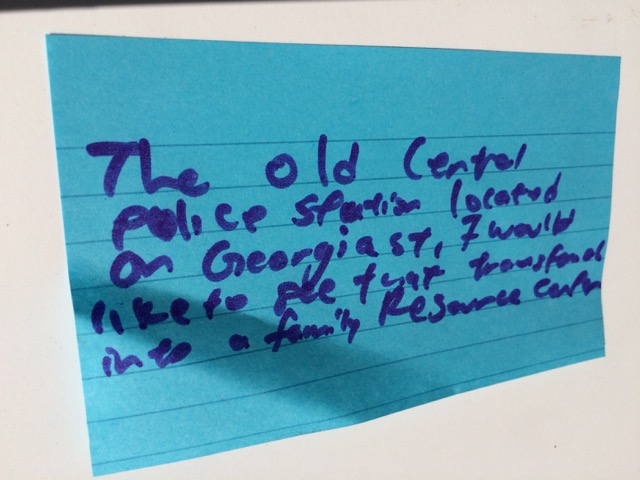 The old Central
police station located
on Georgia st, I would
like to see that transformed
into a family Resource Center